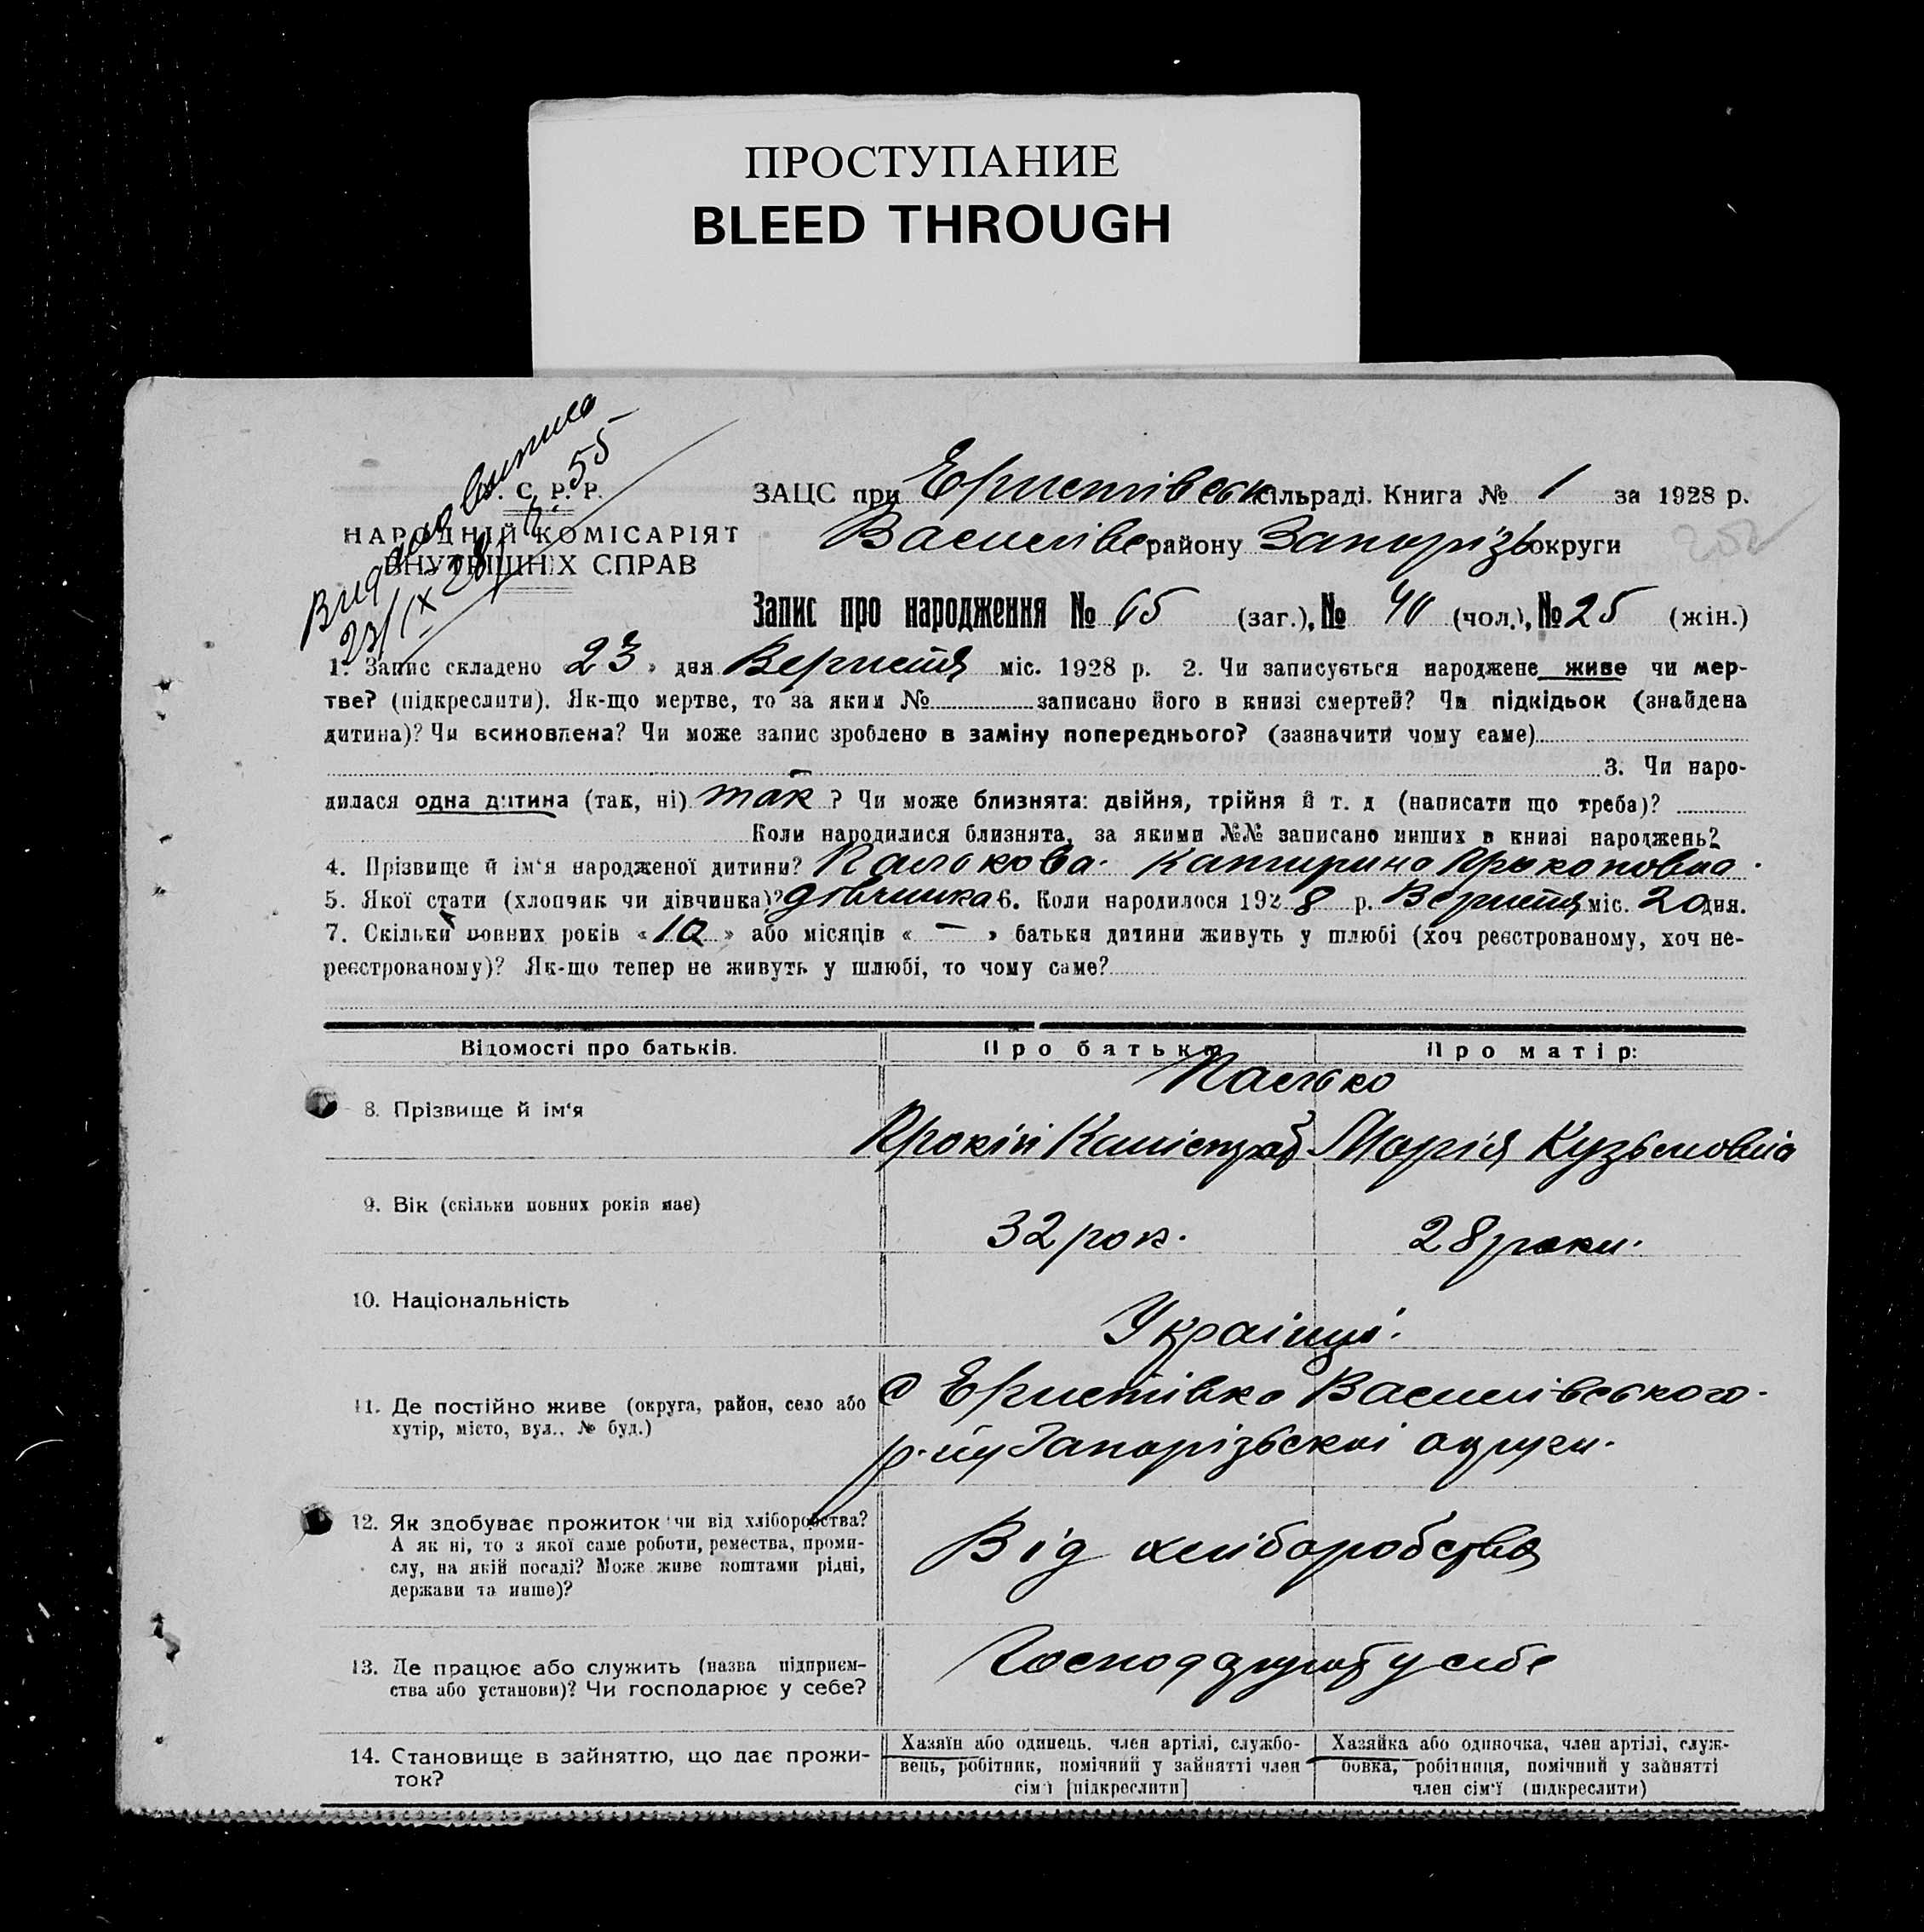 ПРОСТУПАНИЕ
BLEED THROUGH
Видано витяг
23/IX 28 р. 55
. С. Р. Р.
НАРОДНІЙ КОМІСАРІЯТ
ВНУТРІШНІХ СПРАВ
ЗАЦС при Еристівськ сільраді. Книга № 1 за 1928 р.
Василівс району Запорізь округи
252
Запис про народження № 65 (заг.), № 40 (чол.), № 25 (жін.)
1. Запис складено «23» дня Верисня міс. 1928 р. 2. Чи записується народжене живе чи мер-
тве? (підкреслити). Як-що мертве, то за яким № записано його в книзі смертей? Чи підкідьок (знайдена
дитина)? Чи всиновлена? Чи може запис зроблено в заміну попереднього? (зазначити чому саме)
3. Чи наро-
дилася одна дитина (так, ні) так ? Чи може близнята: двійня, трійня й т. д (написати що треба)?
Коли народилися близнята, за якими №№ записано инших в книзі народжень?
4. Прізвище й ім'я народженої дитини? Палькова Катирина Прокоповна
5. Якої стати (хлопчик чи дівчинка)? дівчинка 6. Коли народилося 1928 р. Верисня міс. 20 дня.
7. Скільки повних років «10» або місяців « — » батьки дитини живуть у шлюбі (хоч реєстрованому, хоч не-
реєстрованому)? Як-що тепер не живуть у шлюбі, то чому саме?
Відомості про батьків. Про батька Про матір:
Палько
8. Прізвище й ім'я Прокіп Марія Кузьмовна
9. Вік (скільки повних років має) 32 рок. 28 роки.
10. Національність Українці.
11. Де постійно живе (округа, район, село або
хутір, місто, вул., № буд.)
с Еристівка Василівського
р-ну Запорізьскої округи.
12. Як здобуває прожиток чи від хліборобства?
А як ні, то з якої саме роботи, ремества, проми-
слу, на якій посаді? Може живе коштами рідні,
держави та инше)?
Від хліборобства
13. Де працює або служить (назва підприєм-
ства або установи)? Чи господарює у себе?
у себе
14. Становище в зайняттю, що дає прожи-
ток?
Хазяїн або одинець, член артілі, службо-
вець, робітник, помічний у зайнятті член
сім'ї [підкреслити]
Хазяйка або одиночка, член артілі, служ-
бовка, робітниця, помічний у зайнятті
член сім'ї (підкреслити)